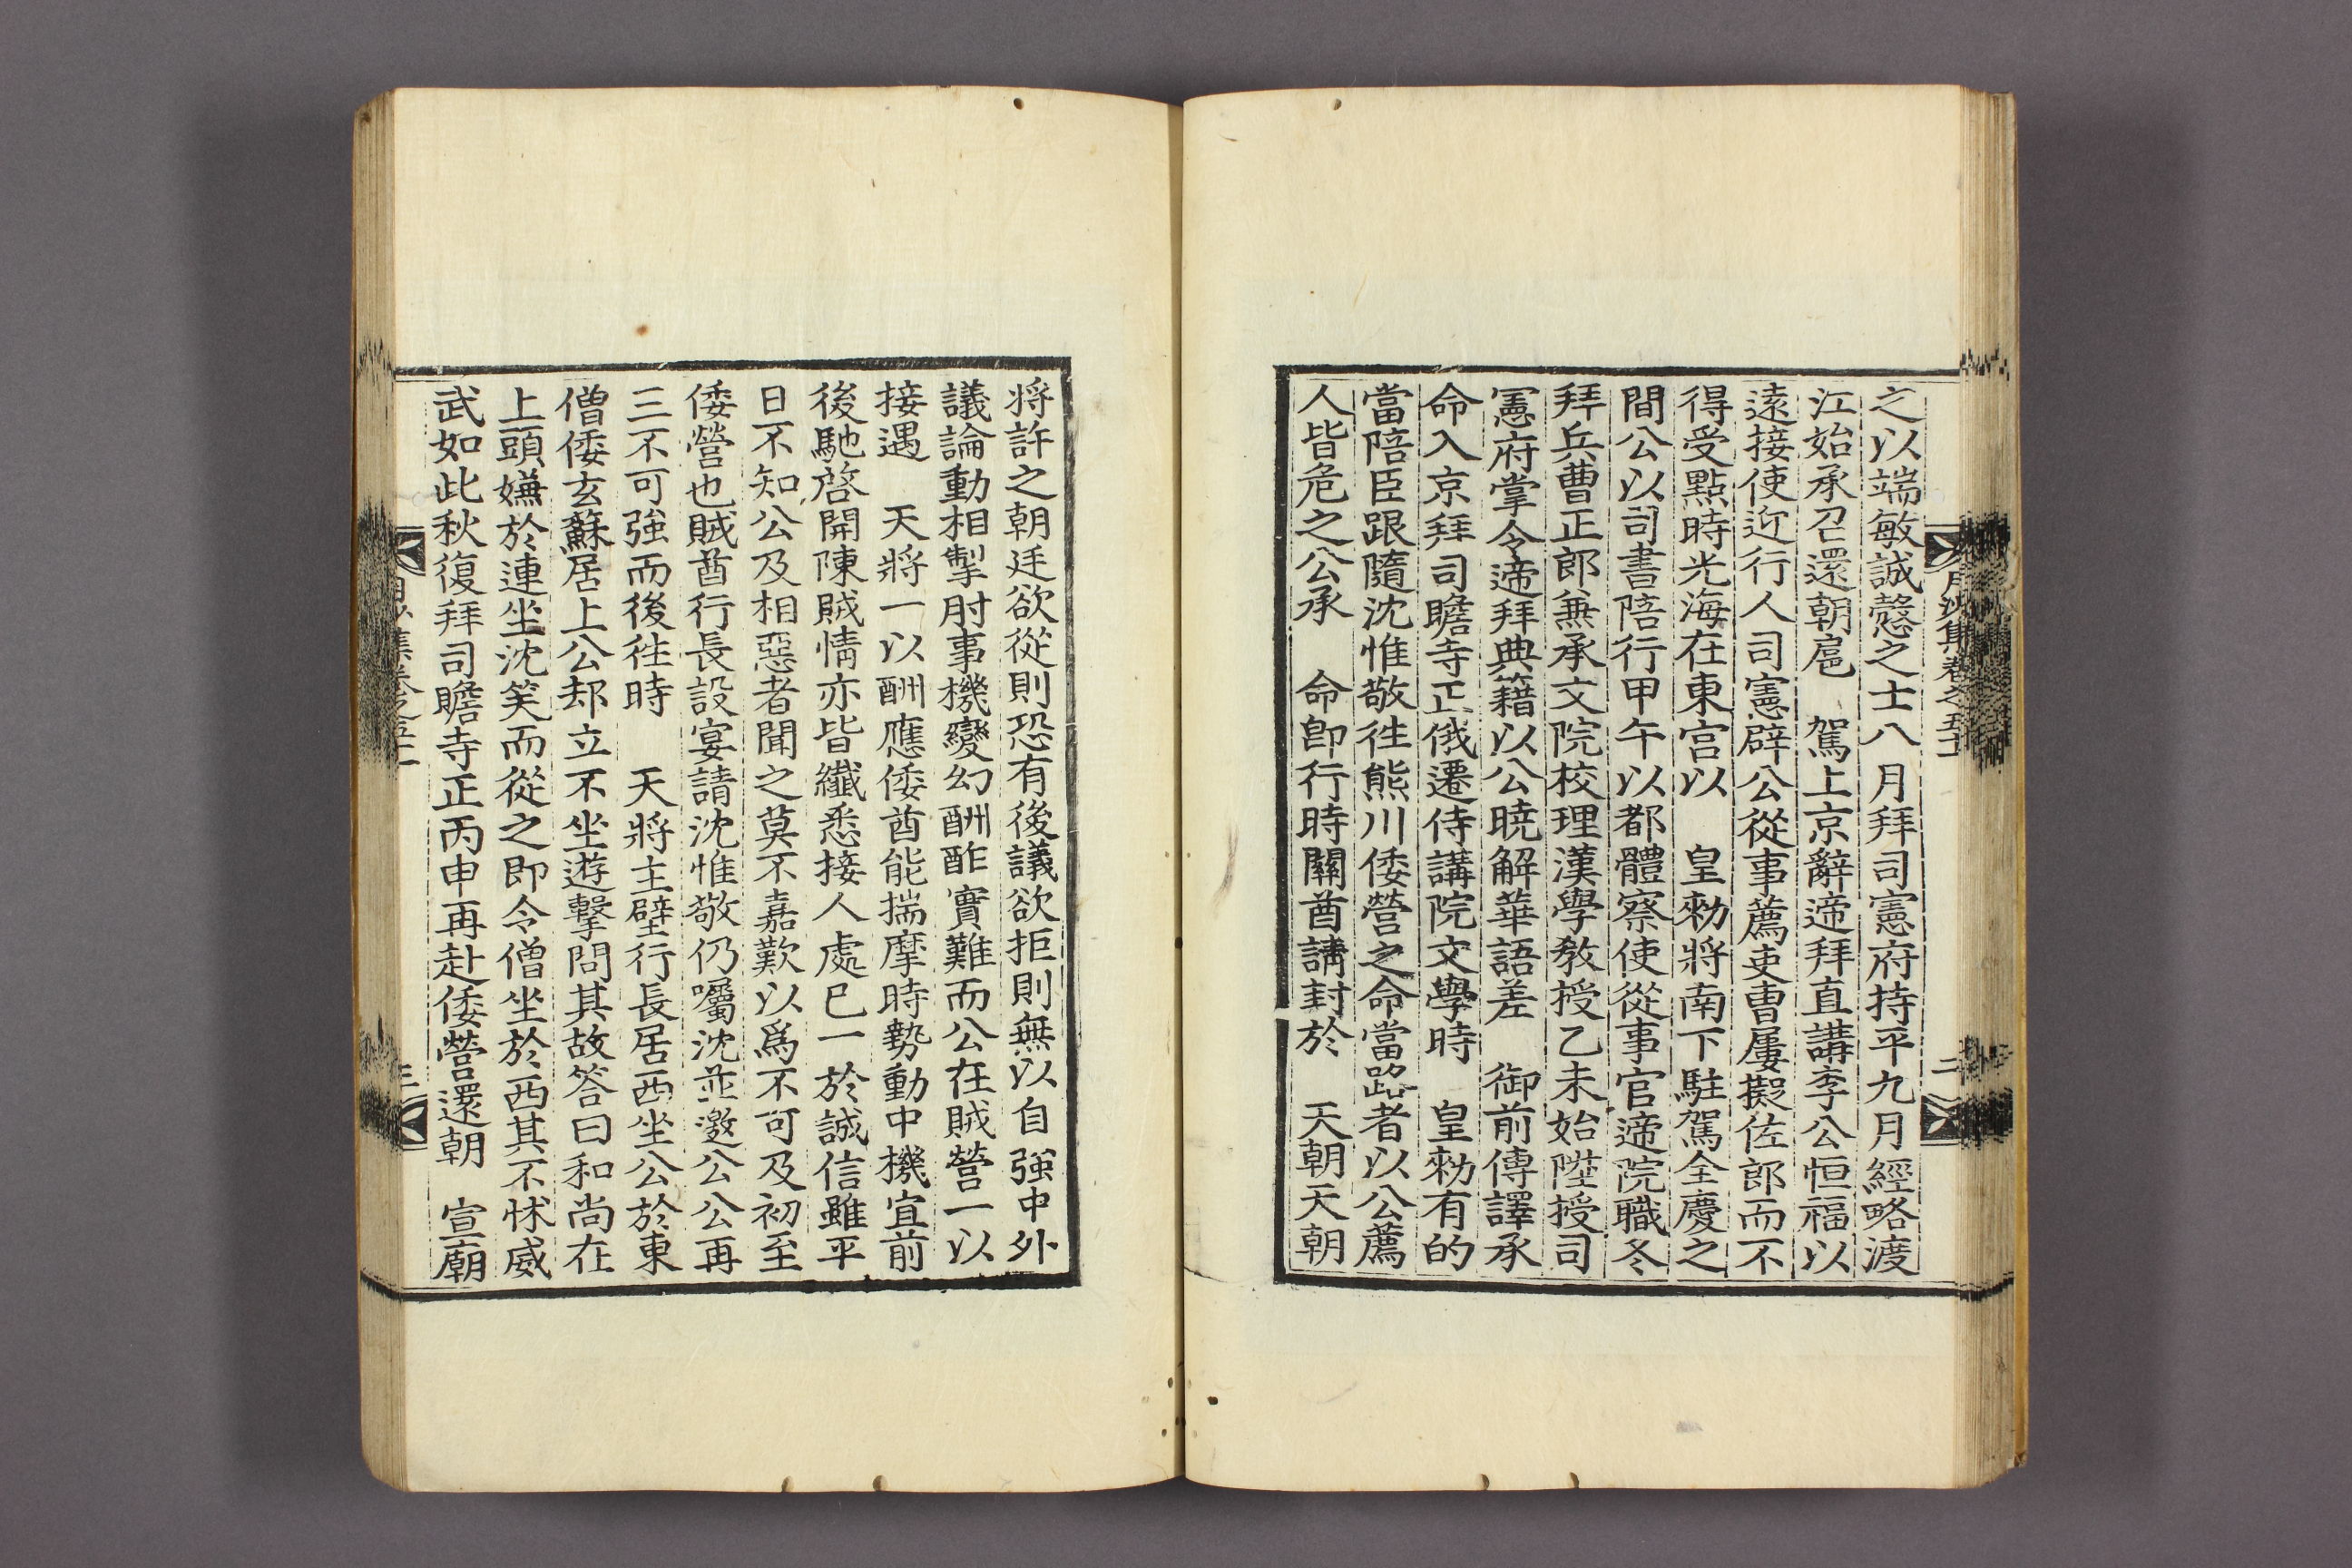 之以端敏誠慤之士八月拜司憲府持平九月經略渡
江始承召還朝扈　駕上京辭遞拜直講李公恒福以
遠接使近行人司憲辟公從事薦吏曹屢擬佐郎而不
得受點時光海在東宮以　皇勑將南下駐駕全慶之
間公以司書陪行甲午以都體察使從事官遞院職冬
拜兵曹正郎兼承文院校理漢學敎授乙未始陞授司
憲府掌令遞拜典籍以公曉解華語差　御前傳譯承
命入京拜司瞻寺正俄遷侍講院文學時　皇勑有的
當陪臣跟隨沈惟敬往熊川倭營之命當路者以公薦
人皆危之公承　命卽行時關酋請封於　天朝天朝
月沙集卷之五十
二
將許之朝廷欲從則恐有後議欲拒則無以自強中外
議論動相掣肘事機變幻酬酢實難而公在賊營一以
接遇　天將一以酬應倭酋能揣摩時勢動中機宜前
後馳啓開陳賊情亦皆纖悉接人處已一於誠信雖平
日不知公及相惡者聞之莫不嘉歎以爲不可及初至
倭營也賊酋行長設宴請沈惟敬仍囑沈並邀公公再
三不可強而後往時　天將主壁行長居西坐公於東
僧倭玄蘇居上公却立不坐遊擊問其故答曰和尚在
上頭嫌於連坐沈笑而從之即令僧坐於西其不怵威
武如此秋復拜司瞻寺正丙申再赴倭營還朝　宣廟
集卷之五十
三